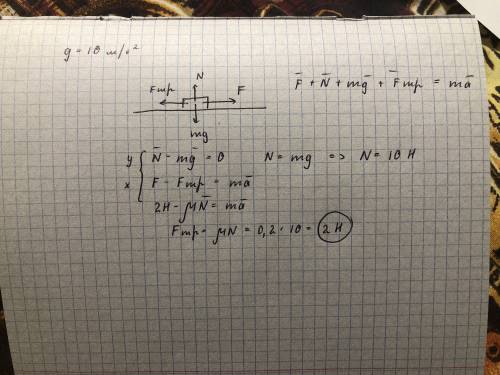 g = 10 м/с²
N
Fтр F
mg
F̄ + N̄ + mḡ + F̄тр = mā
y N̄ - mḡ = 0 N = mg => N = 10 Н
x F - Fтр = mā
2Н - μN̄ = mā
Fтр = μN = 0,2 · 10 = 2 Н